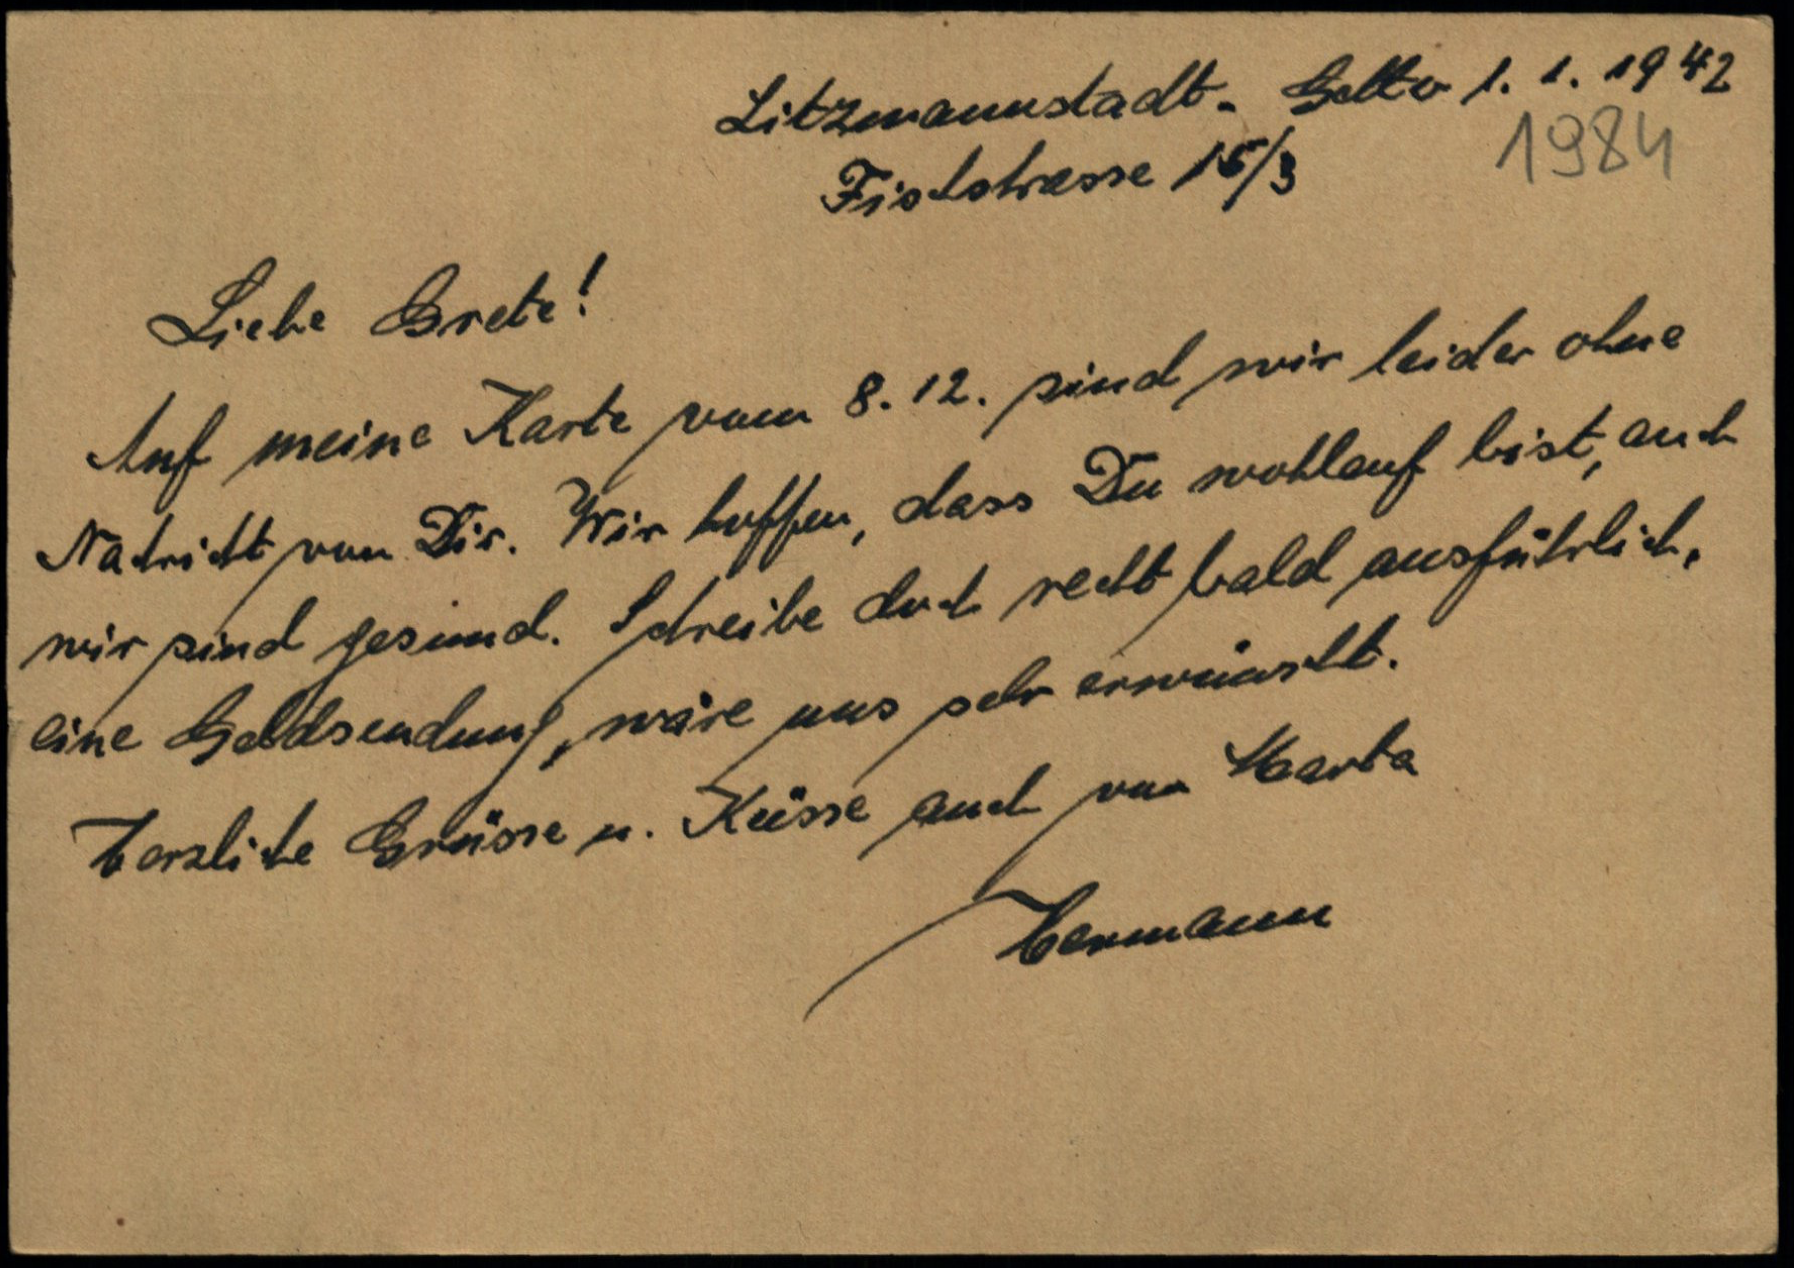 Litzmannstadt-Getto 1. 1. 1942
1984
Fischstrasse 15/3
Liebe Grete!
Auf meine Karte vom 8. 12. sind wir leider ohne
Nachricht von Dir. Wir hoffen, dass Du wohlauf bist, auch
wir sind gesund. Schreibe doch recht bald ausführlich,
eine Geldsendung, wäre uns sehr erwünscht.
Herzliche Grüsse u. Küsse auch von Marta
Hermann